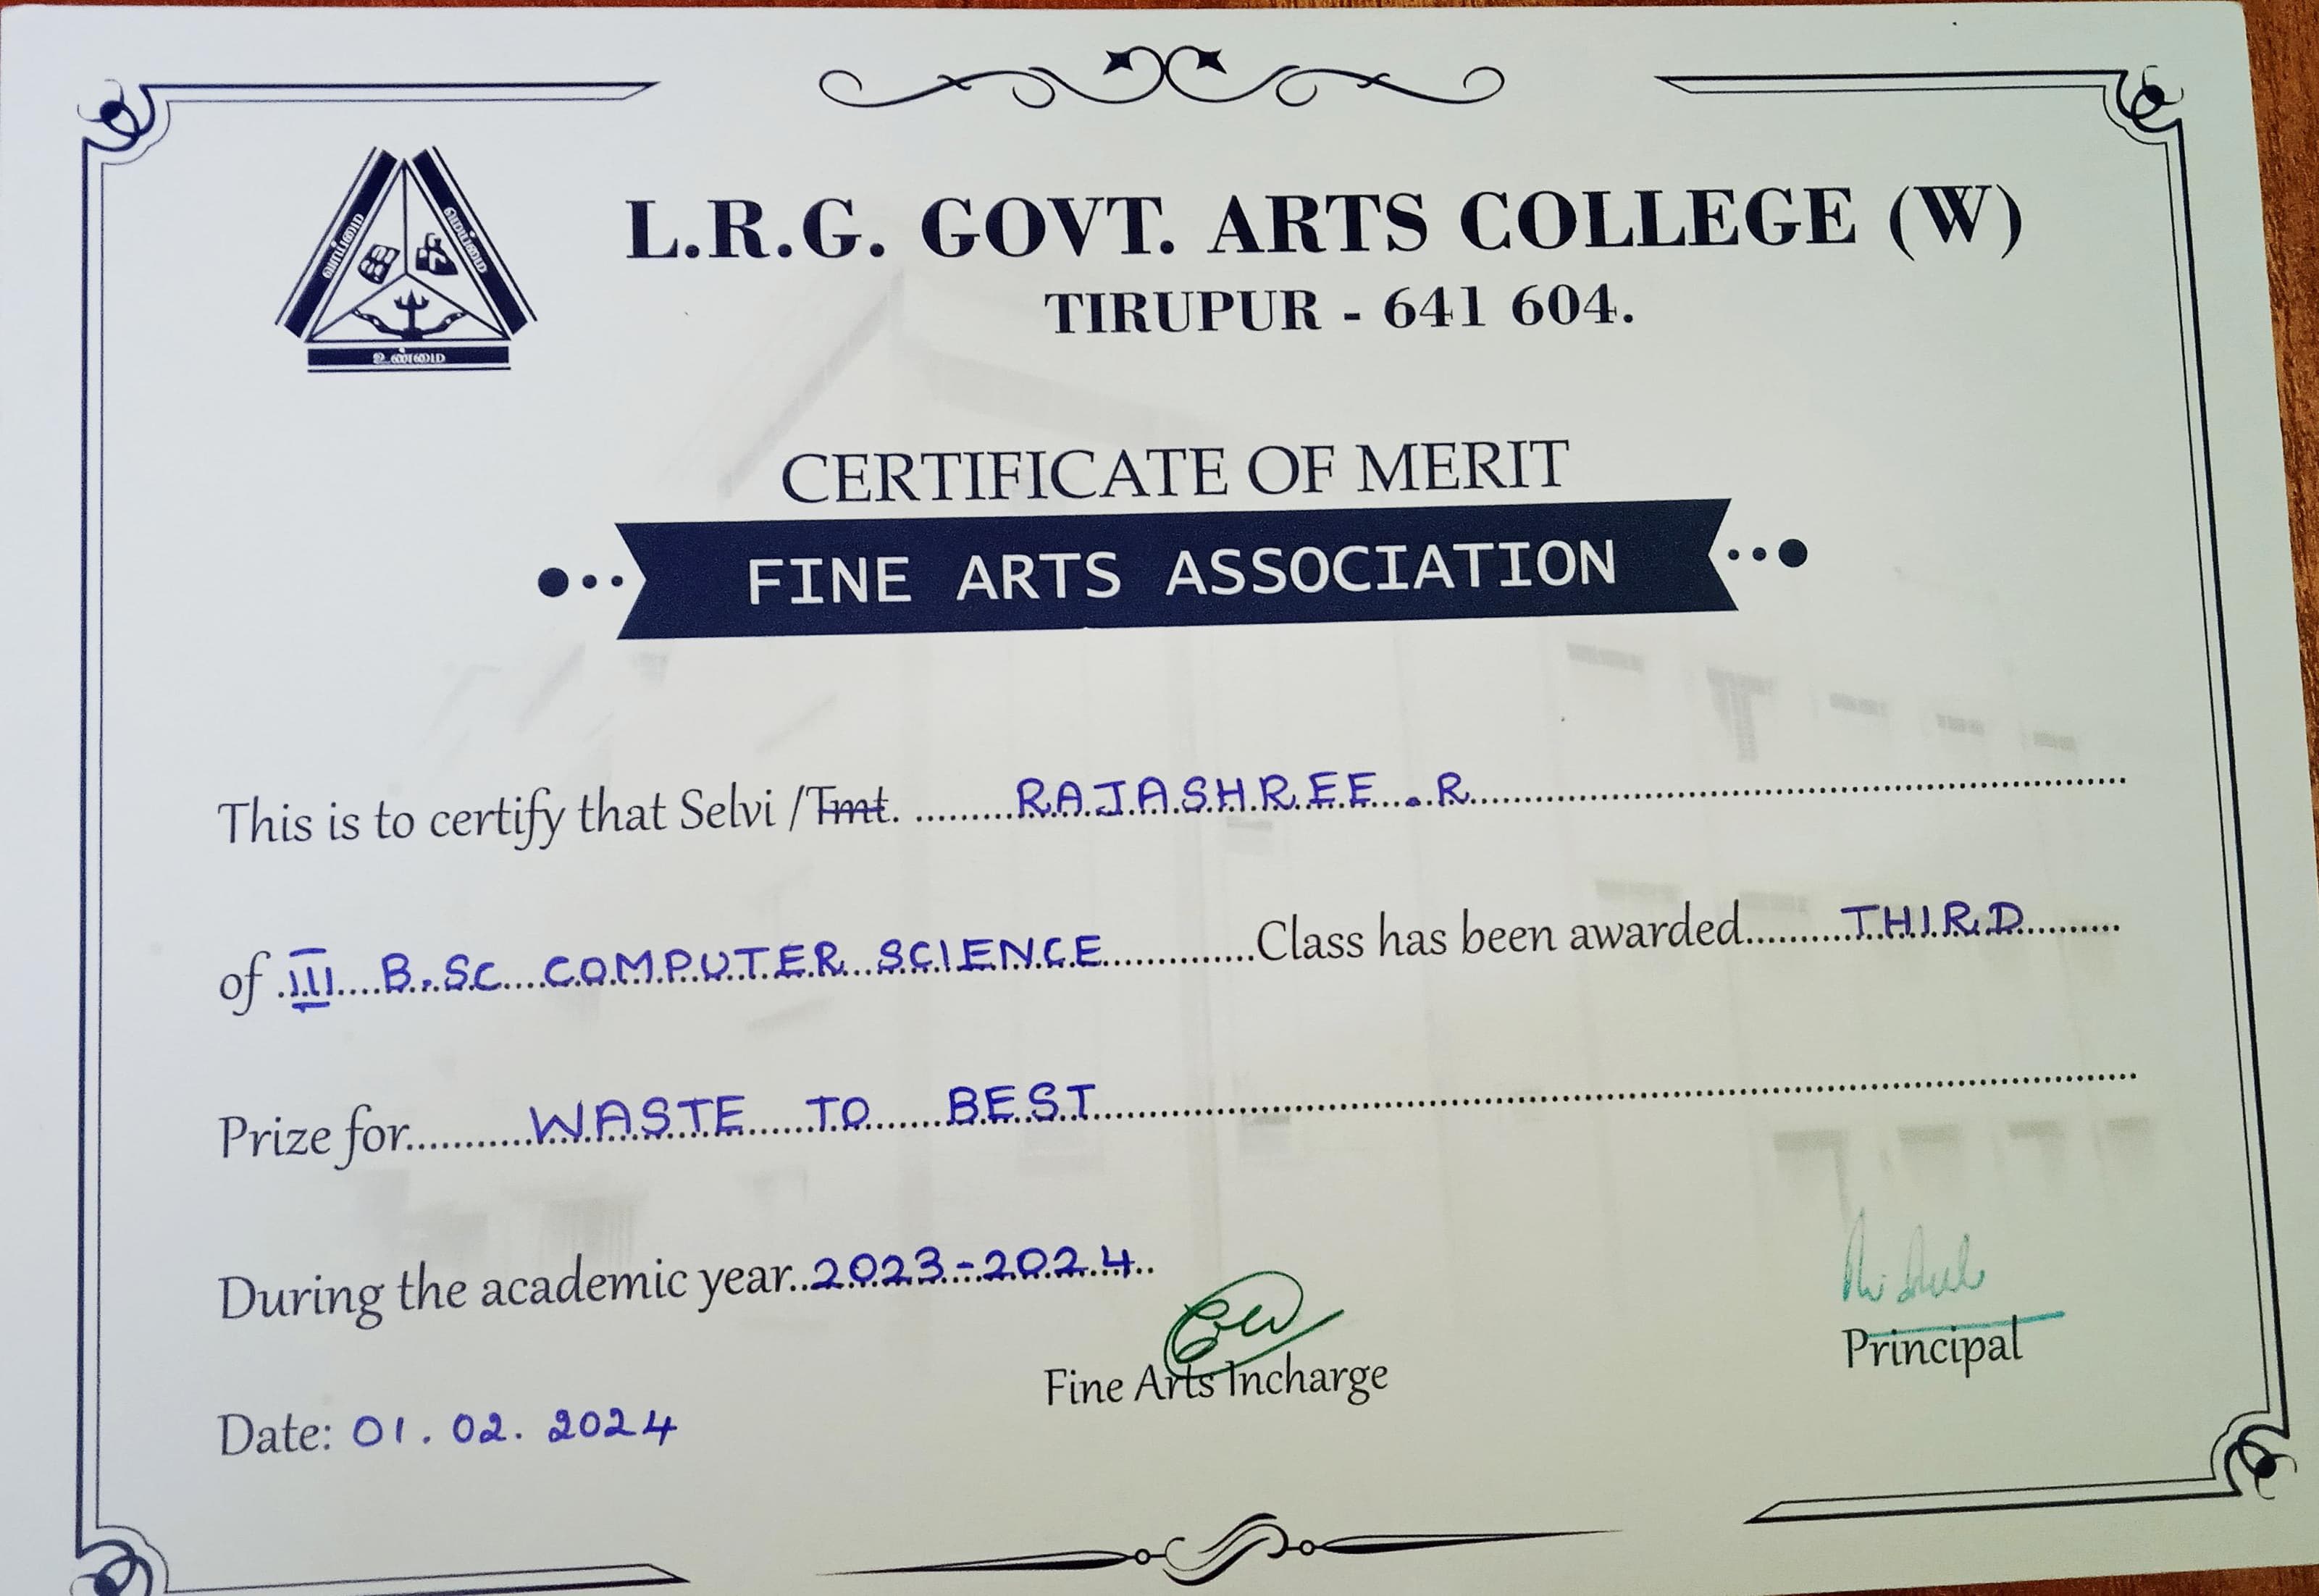 வாய்மை
மெய்ம்மை
உண்மை
L.R.G. GOVT. ARTS COLLEGE (W)
TIRUPUR - 641 604.
CERTIFICATE OF MERIT
FINE ARTS ASSOCIATION
This is to certify that Selvi / Tmt. RAJASHREE . R
of III B.Sc COMPUTER SCIENCE Class has been awarded THIRD
Prize for WASTE TO BEST
During the academic year 2023-2024
Fine Arts Incharge
Principal
Date: 01.02.2024